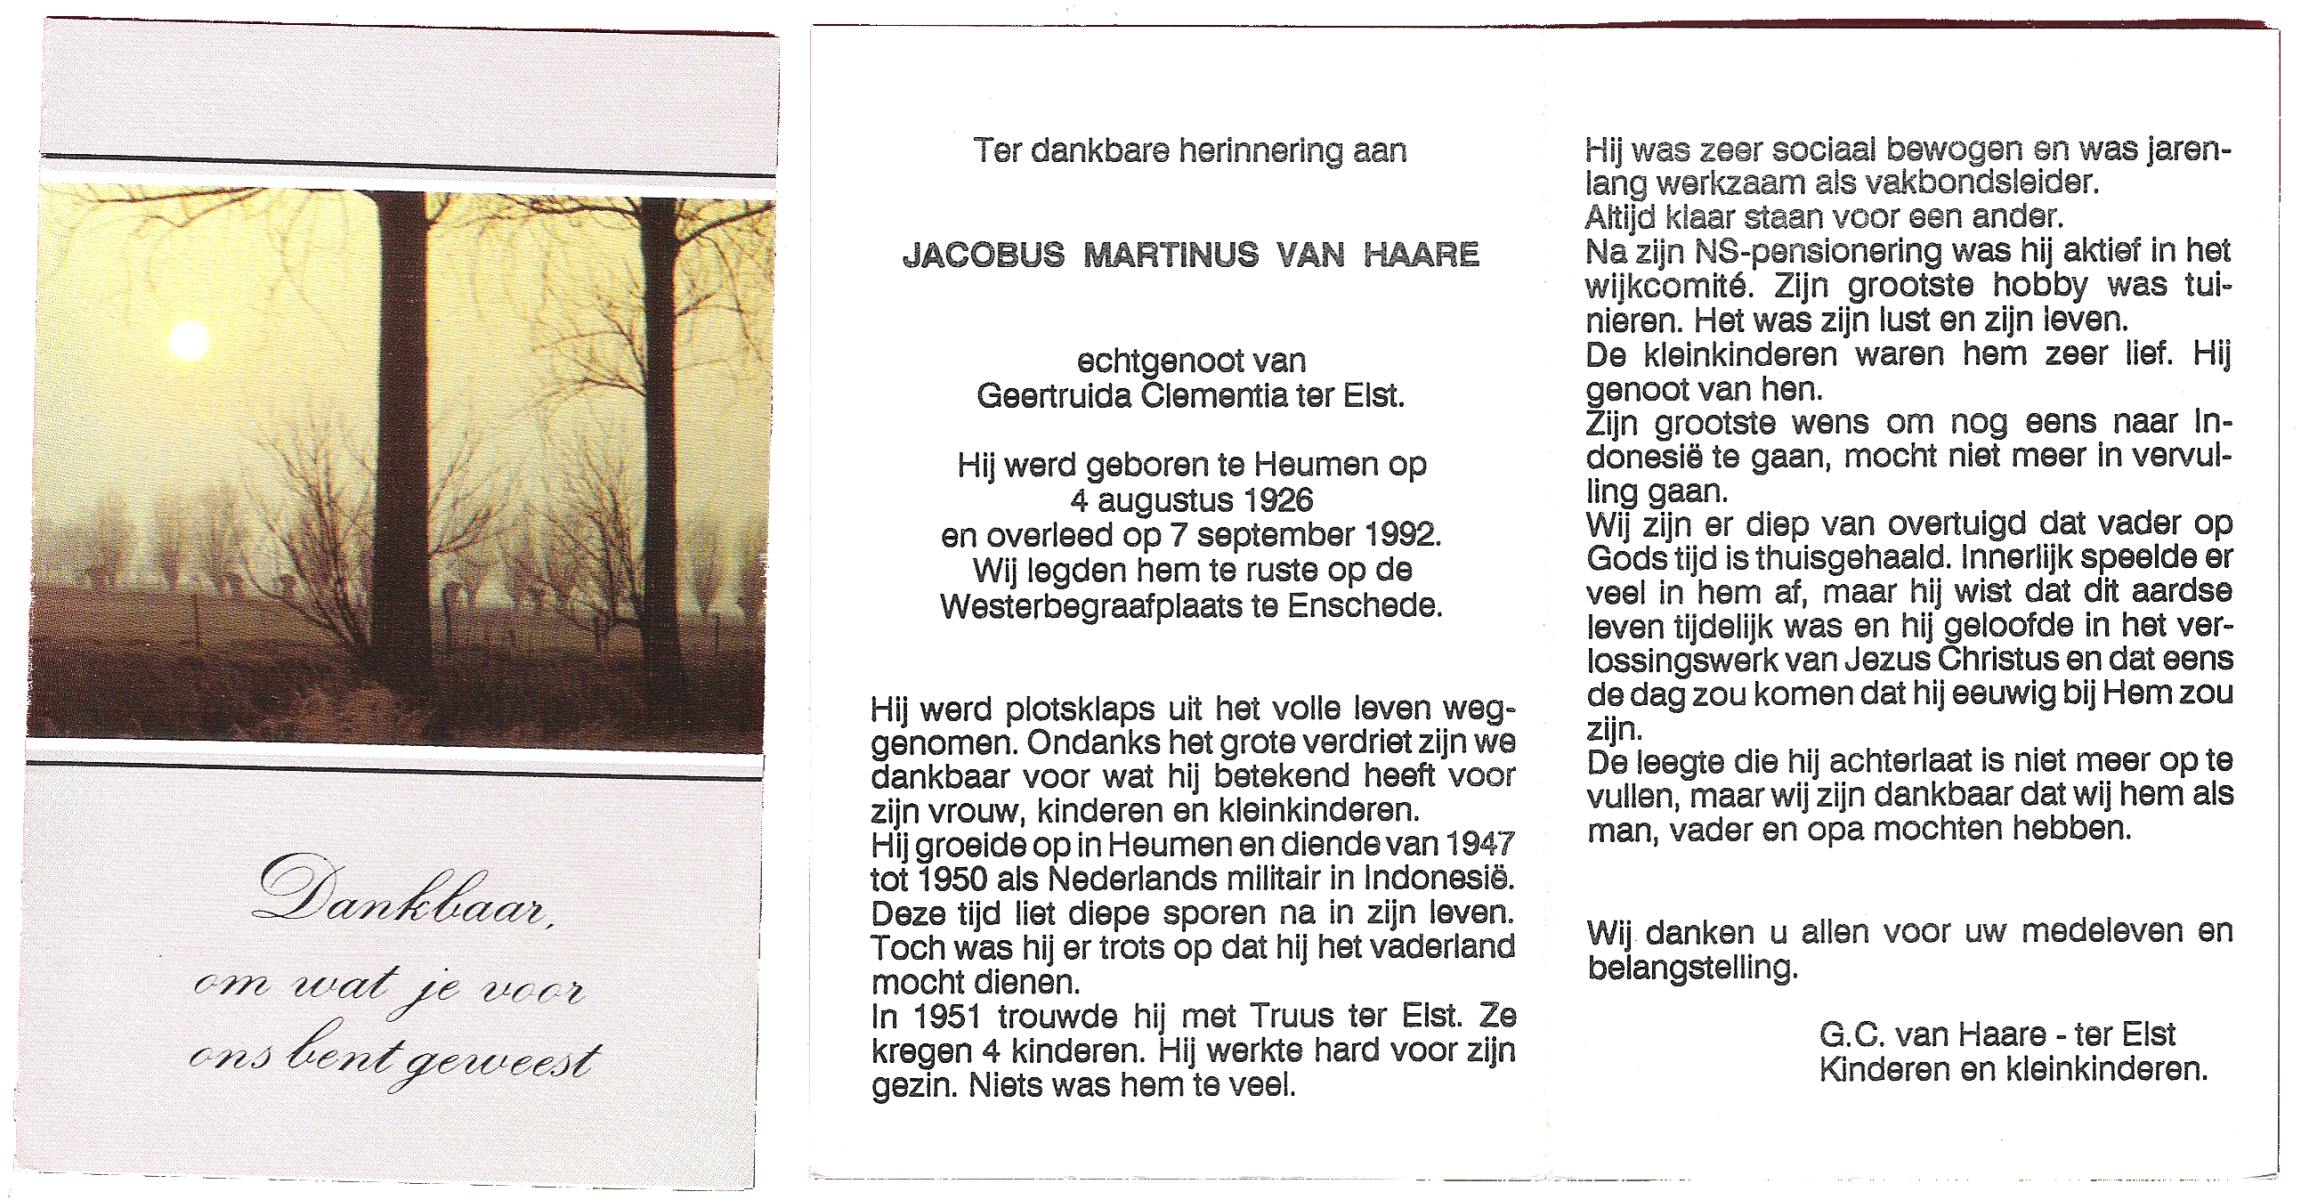 Dankbaar,
om wat je voor
ons bent geweest
Ter dankbare herinnering aan
JACOBUS MARTINUS VAN HAARE
echtgenoot van
Geertruida Clementia ter Elst.
Hij werd geboren te Heumen op
4 augustus 1926
en overleed op 7 september 1992.
Wij legden hem te ruste op de
Westerbegraafplaats te Enschede.
Hij werd plotsklaps uit het volle leven weg-
genomen. Ondanks het grote verdriet zijn we
dankbaar voor wat hij betekend heeft voor
zijn vrouw, kinderen en kleinkinderen.
Hij groeide op in Heumen en diende van 1947
tot 1950 als Nederlands militair in Indonesië.
Deze tijd liet diepe sporen na in zijn leven.
Toch was hij er trots op dat hij het vaderland
mocht dienen.
In 1951 trouwde hij met Truus ter Elst. Ze
kregen 4 kinderen. Hij werkte hard voor zijn
gezin. Niets was hem te veel.
Hij was zeer sociaal bewogen en was jaren-
lang werkzaam als vakbondsleider.
Altijd klaar staan voor een ander.
Na zijn NS-pensionering was hij aktief in het
wijkcomité. Zijn grootste hobby was tui-
nieren. Het was zijn lust en zijn leven.
De kleinkinderen waren hem zeer lief. Hij
genoot van hen.
Zijn grootste wens om nog eens naar In-
donesië te gaan, mocht niet meer in vervul-
ling gaan.
Wij zijn er diep van overtuigd dat vader op
Gods tijd is thuisgehaald. Innerlijk speelde er
veel in hem af, maar hij wist dat dit aardse
leven tijdelijk was en hij geloofde in het ver-
lossingswerk van Jezus Christus en dat eens
de dag zou komen dat hij eeuwig bij Hem zou
zijn.
De leegte die hij achterlaat is niet meer op te
vullen, maar wij zijn dankbaar dat wij hem als
man, vader en opa mochten hebben.
Wij danken u allen voor uw medeleven en
belangstelling.
G.C. van Haare - ter Elst
Kinderen en kleinkinderen.